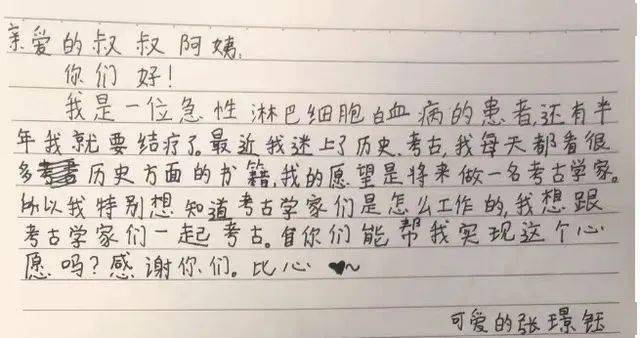 亲爱的叔叔阿姨:
你们好!
我是一位急性淋巴细胞白血病的患者,还有半
年我就要结疗了。最近我迷上了历史、考古,我每天都看很
多历史方面的书籍,我的愿望是将来做一名考古学家。
所以我特别想知道考古学家们是怎么工作的,我想跟
考古学家们一起考古。你们能帮我实现这个心
愿吗?感谢你们。比心 ♥~
可爱的张璟钰